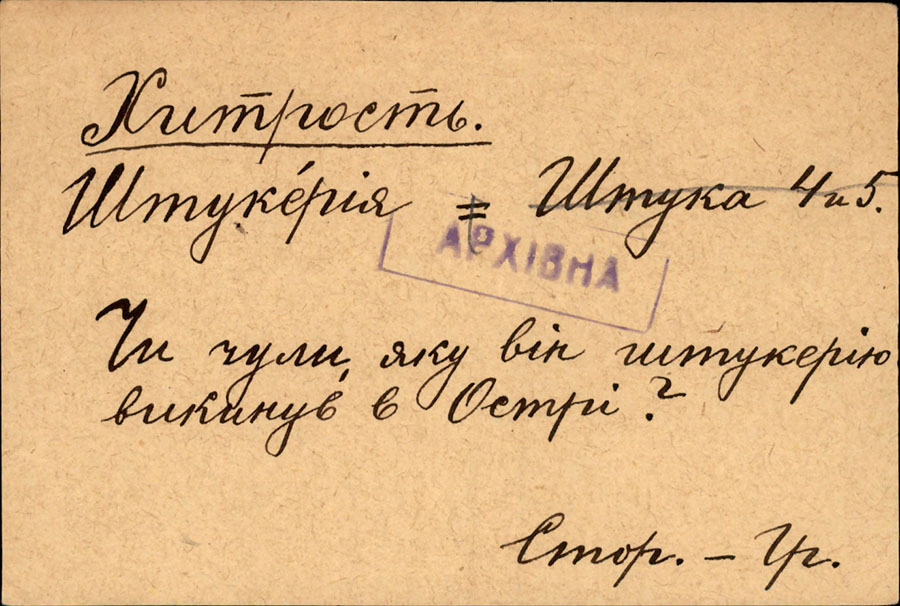 Хитрость.
Штуке́рія = Штука 4 и 5.
АРХІВНА
Чи чули, яку він штукерію
викинув в Острі?
Стор. – Гр.